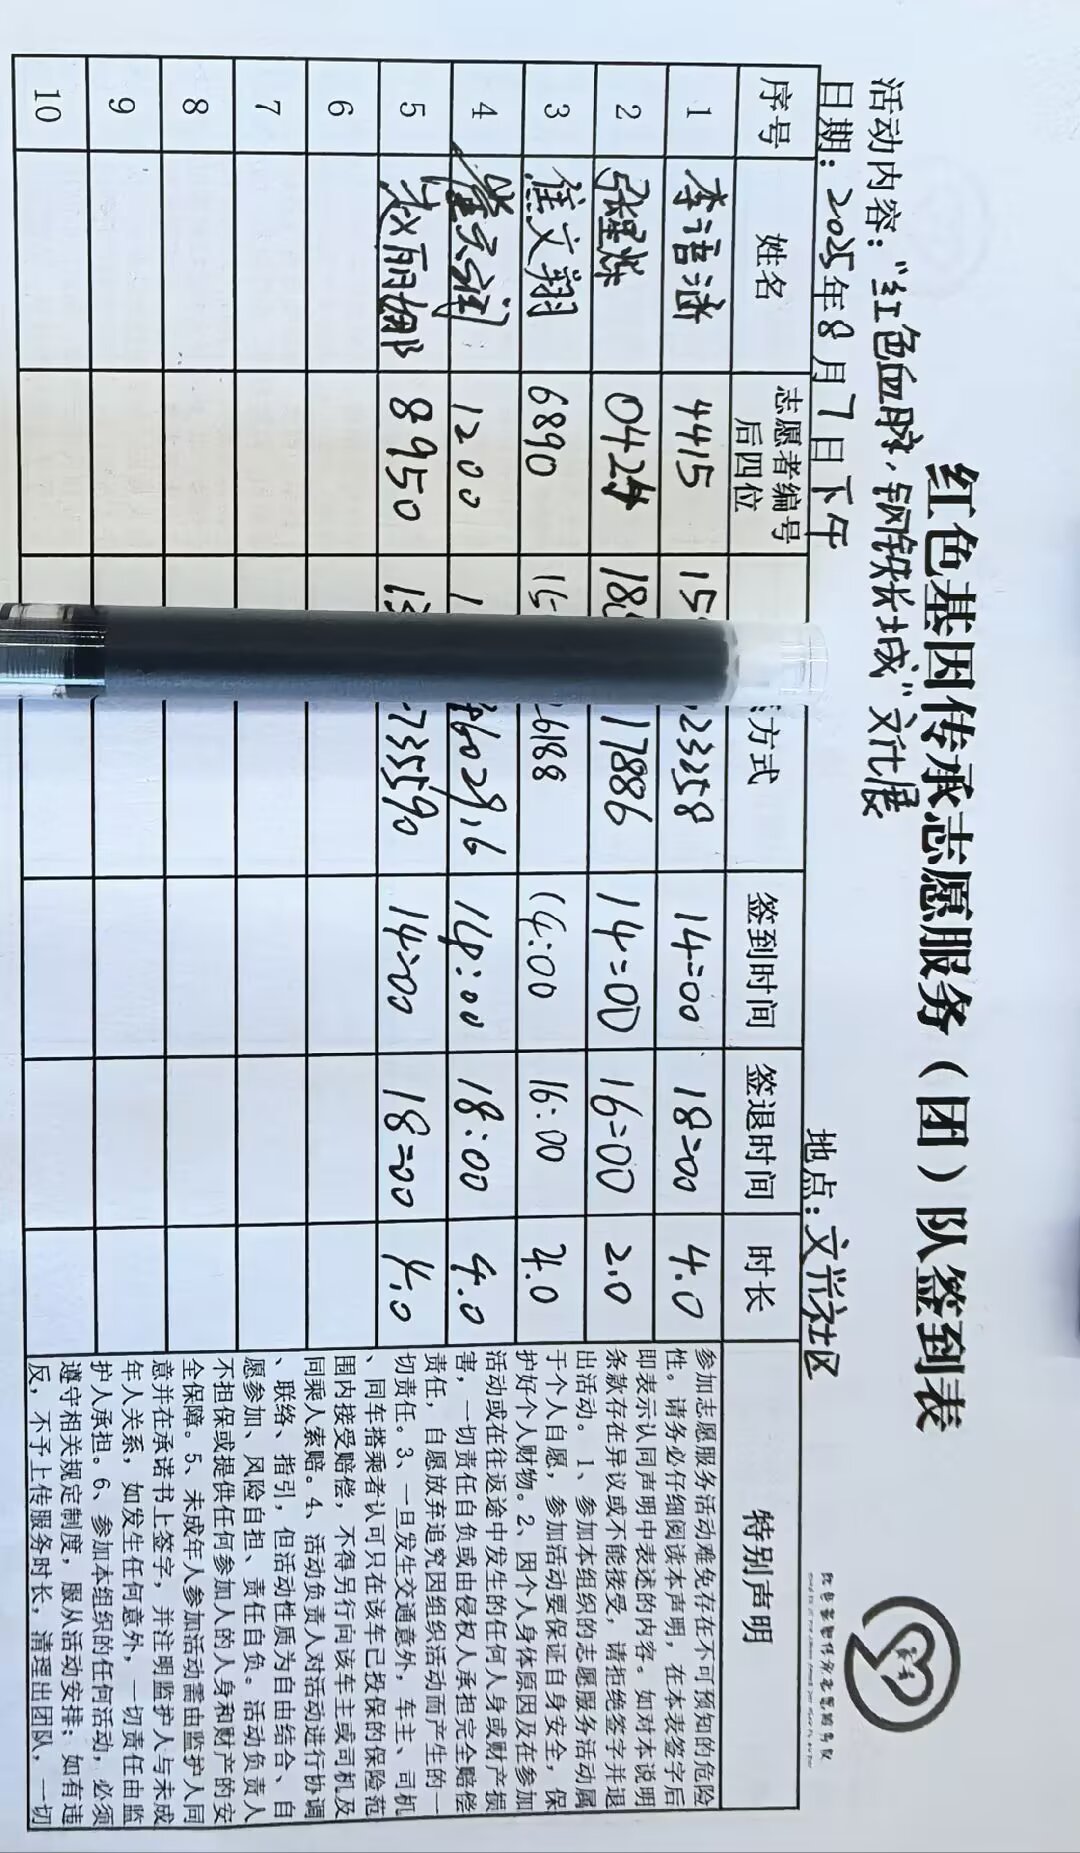 红色基因传承志愿服务（团）队签到表
活动内容：“红色血脉，钢铁长城”文化展
日期：2025年8月7日下午 地点：文兴社区
序号 姓名 志愿者编号后四位 方式 签到时间 签退时间 时长 特别声明
1 李语涵 4415 15 23358 14:00 18:00 4.0
2 张星烁 0424 18 17886 14:00 16:00 2.0
3 焦文翔 6890 15 6188 14:00 16:00 4.0
4 1200 1 14:00 18:00 4.0
5 赵丽娜 8950 13 73590 14:00 18:00 4.0
6
7
8
9
10
参加志愿服务活动难免存在不可预知的危险
性。请务必仔细阅读本声明，在本表签字后
即表示认同声明中表述的内容。如对本说明
条款存在异议或不能接受，请拒绝签字并退
出活动。1、参加本组织的志愿服务活动属
于个人自愿，参加活动要保证自身安全，保
护好个人财物。2、因个人身体原因及在参加
活动或在往返途中发生的任何人身或财产损
害，一切责任自负或由侵权人承担完全赔偿
责任，自愿放弃追究因组织活动而产生的一
切责任。3、一旦发生交通意外，车主、司机
、同车搭乘者认可只在该车已投保的保险范
围内接受赔偿，不得另行向该车主或司机及
同乘人索赔。4、活动负责人对活动进行协调
、联络、指引，但活动性质为自由结合、自
愿参加、风险自担、责任自负。活动负责人
不担保或提供任何参加人的人身和财产的安
全保障。5、未成年人参加活动需由监护人同
意并在承诺书上签字，并注明监护人与未成
年人关系，如发生任何意外，一切责任由监
护人承担。6、参加本组织的任何活动，必须
遵守相关规定制度，服从活动安排；如有违
反，不予上传服务时长，清理出团队，一切